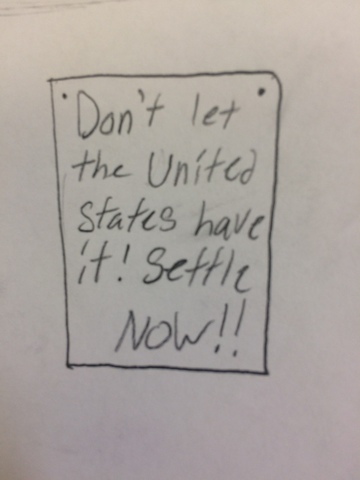 Don't let
the United
States have
it! Settle
NOW!!